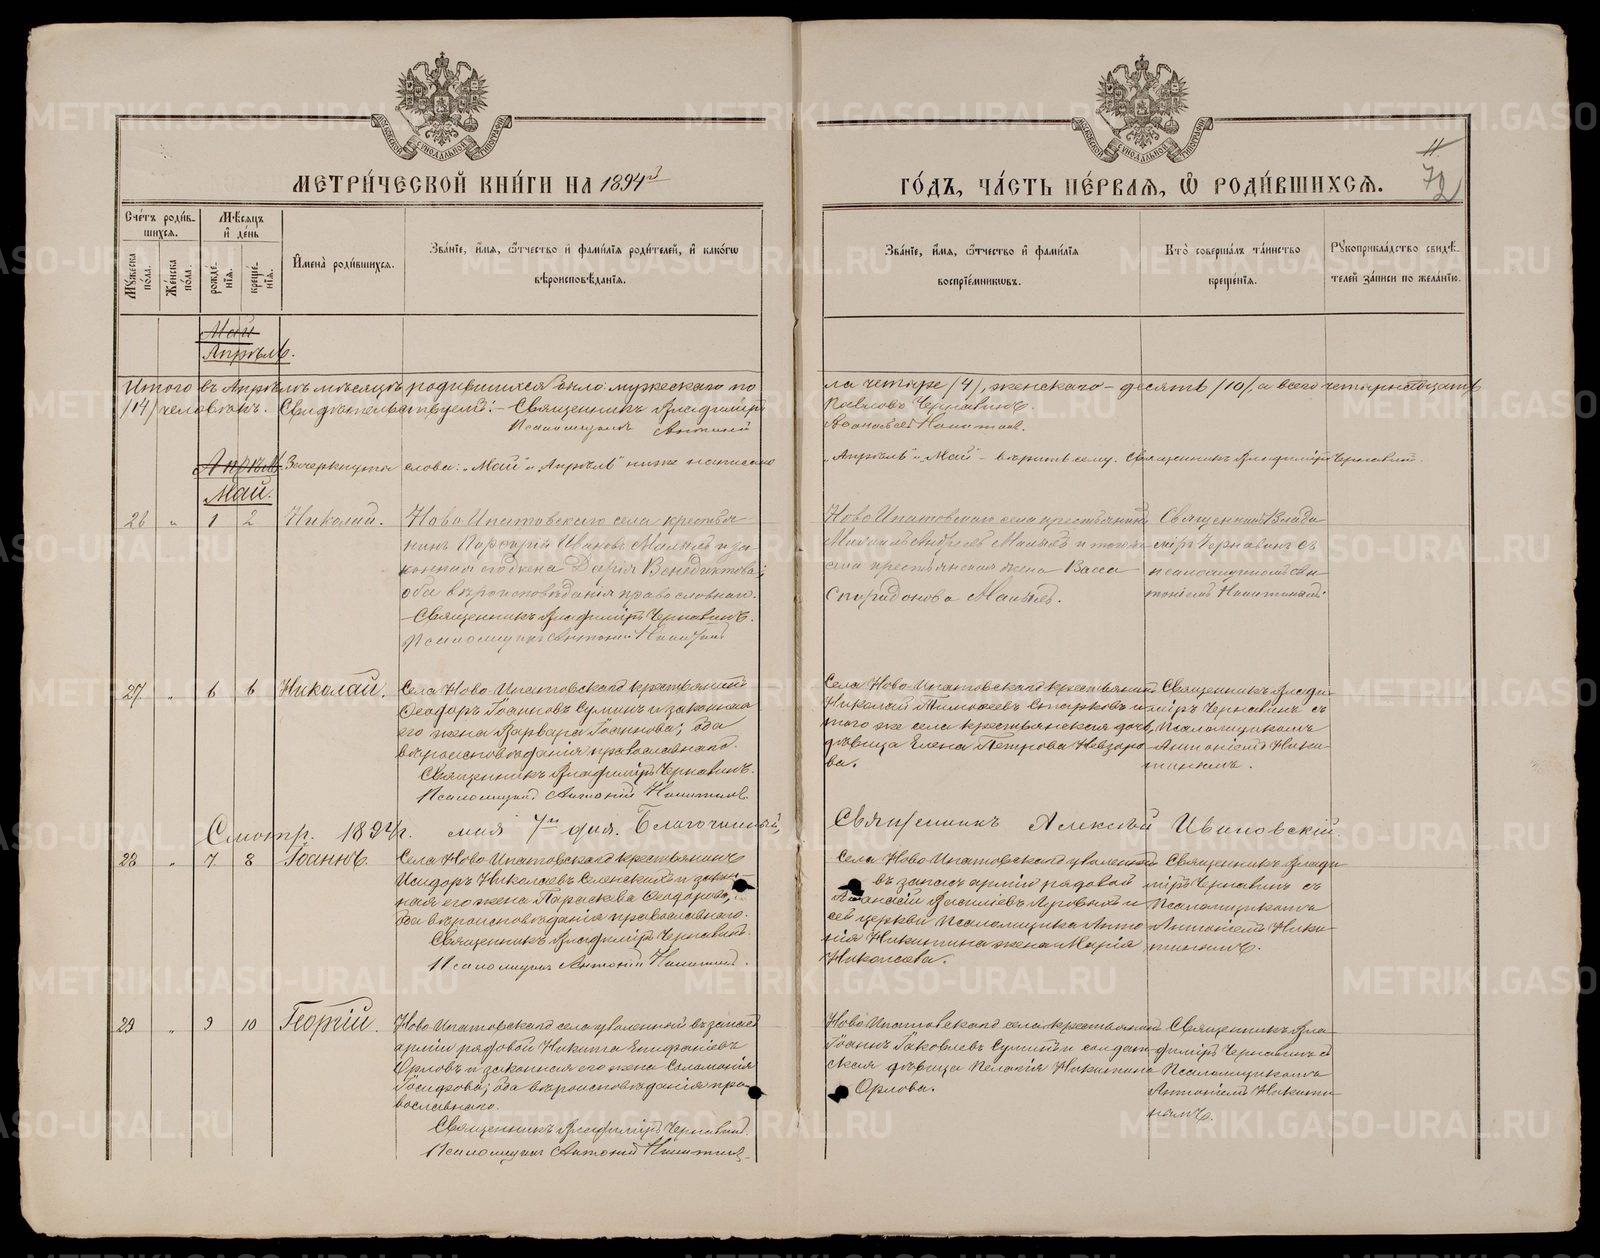 МЕТРИ́ЧЕСКОЙ КНИ́ГИ НА 1894й
ГО́ДЪ, ЧА́СТЬ ПЕ́РВАѦ, Ѡ РОДИ́ВШИХСѦ.
11.
72
Сче́тъ роди́в-
шихсѧ.
Мꙋжеска по́ла.
Же́нска по́ла.
Мѣсѧцъ
и̂ де́нь
рожде́-нїѧ.
креще́-нїѧ.
И̂мена̀ роди́вшихсѧ.
Зва́нїе, и́мѧ, ѻ́тчество и̂ фами́лїѧ роди́телей, и̂ како́гѡ
вѣроисповѣ́данїѧ.
Зва́нїе, и́мѧ, ѻ́тчество и̂ фами́лїѧ
воспрїе́мникѡвъ.
Кто̀ соверша́лъ та́инство
креще́нїѧ.
Рꙋкоприкла́дство свидѣ́-
телей за́писи по жела́нїю.
Май
Апрѣль.
Итого въ Апрѣлѣ мѣсяцѣ родившихся было: мужескаго по
ла четыре /4/, женскаго – десять /10/, а всего четырнадцать
/14/ человѣкъ. Свидѣтельствуемъ: – Священникъ Владиміръ
Павловъ Чернавинъ.
Псаломщикъ Антоній
Никитинъ.
Апрѣль
Май.
Зачеркнуты слова: „Май“ и „Апрѣль“ ниже написано
„Апрѣль“ и „Май“ – вѣрить сему. Священникъ Владиміръ Чернавинъ.
26 „ 1 2 Николай.
Ново Ипатовскаго села крестья
нинъ Порфирій Ивановъ Малыхъ и за-
конная его жена Дарія Венедиктова;
оба вѣроисповѣданія православнаго.
Священникъ Владиміръ Чернавинъ.
Псаломщикъ Антоній Никитинъ
Ново Ипатовскаго села крестьянинъ
Малыхъ и того же
села крестьянская жена Васса
Спиридонова Малыхъ.
Священникъ Влади
міръ Чернавинъ съ
псаломщикомъ Ан
тоніемъ Никитинымъ
27 „ 6 6 Николай.
Села Ново Ипатовскаго крестьянинъ
Ѳеодоръ Іоанновъ Суминъ и законная
его жена Варвара Іоаннова; оба
вѣроисповѣданія православнаго.
Священникъ Владиміръ Чернавинъ.
Псаломщикъ Антоній Никитинъ.
Села Ново Ипатовскаго крестьянинъ
Николай Тимоѳеевъ Старковъ и
того же села крестьянская дочь
дѣвица Елена Петрова Невзоро
ва.
Священникъ Влади-
міръ Чернавинъ съ
Псаломщикомъ
Антоніемъ Ники-
тинымъ.
Смотр. 1894 г. мая 7го дня. Благочинный,
Священникъ Алексѣй Ивановскій.
28 „ 7 8 Іоаннъ.
Села Ново Ипатовскаго крестьянинъ
Исидоръ Николаевъ Селенскихъ и закон-
ная его жена Параскева Ѳеодорова;
оба вѣроисповѣданія православнаго.
Священникъ Владиміръ Чернавинъ.
Псаломщикъ Антоній Никитинъ.
Села Ново Ипатовскаго уволенный
въ запасъ арміи рядовой
Аѳанасій Васильевъ и
сей церкви Псаломщика Анто
нія Никитина жена Марія
Николаева.
Священникъ Влади-
міръ Чернавинъ съ
Псаломщикомъ
Антоніемъ Ники-
тинымъ.
29 „ 9 10 Георгій.
Ново Ипатовскаго села уволенный въ запасъ
арміи рядовой Никита Епифаніевъ
Орловъ и законная его жена Соломонія
Іосифова; оба вѣроисповѣданія пра-
вославнаго.
Священникъ Владиміръ Чернавинъ.
Псаломщикъ Антоній Никитинъ.
Ново Ипатовскаго села крестьянинъ
Іоаннъ Іаковлевъ Суминъ и солдат-
ская дѣвица Пелагія Никитина
Орлова.
Священникъ Вла-
диміръ Чернавинъ съ
Псаломщикомъ
Антоніемъ Никити-
нымъ.
METRIKI.GASO-URAL.RU